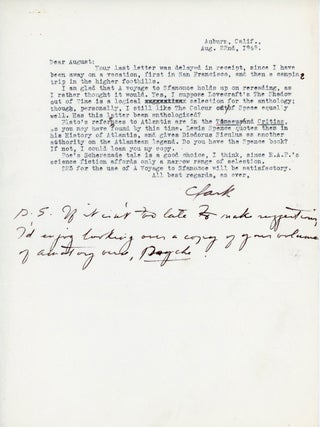 Auburn, Calif.
Aug. 22nd, 1948.
Dear August:
Your last letter was delayed in receipt, since I have
been away on a vacation, first in San Francisco, and then a camping
trip in the higher foothills.
I am glad that A Voyage to Sfanomoe holds up on rereading, as
I rather thought it would. Yes, I suppose Lovecraft's The Shadow
out of Time is a logical selection for the anthology;
though, personally, I still like The Colour out of Space equally
well. Has this latter been anthologized?
Plato's references to Atlantis are in the Timaeus and Critias,
as you may have found by this time. Lewis Spence quotes them in
his History of Atlantis, and gives Diodorus Siculus as another
authority on the Atlantean legend. Do you have the Spence book?
If not, I could loan you my copy.
Poe's Scherezade tale is a good choice, I think, since E.A.P.'s
science fiction affords only a narrow range of selection.
$25 for the use of A Voyage to Sfanomoe will be satisfactory.
All best regards, as ever,
Clark
P.S. If it isn't too late to make suggestions,
I'd enjoy looking over a copy of your volume
of a